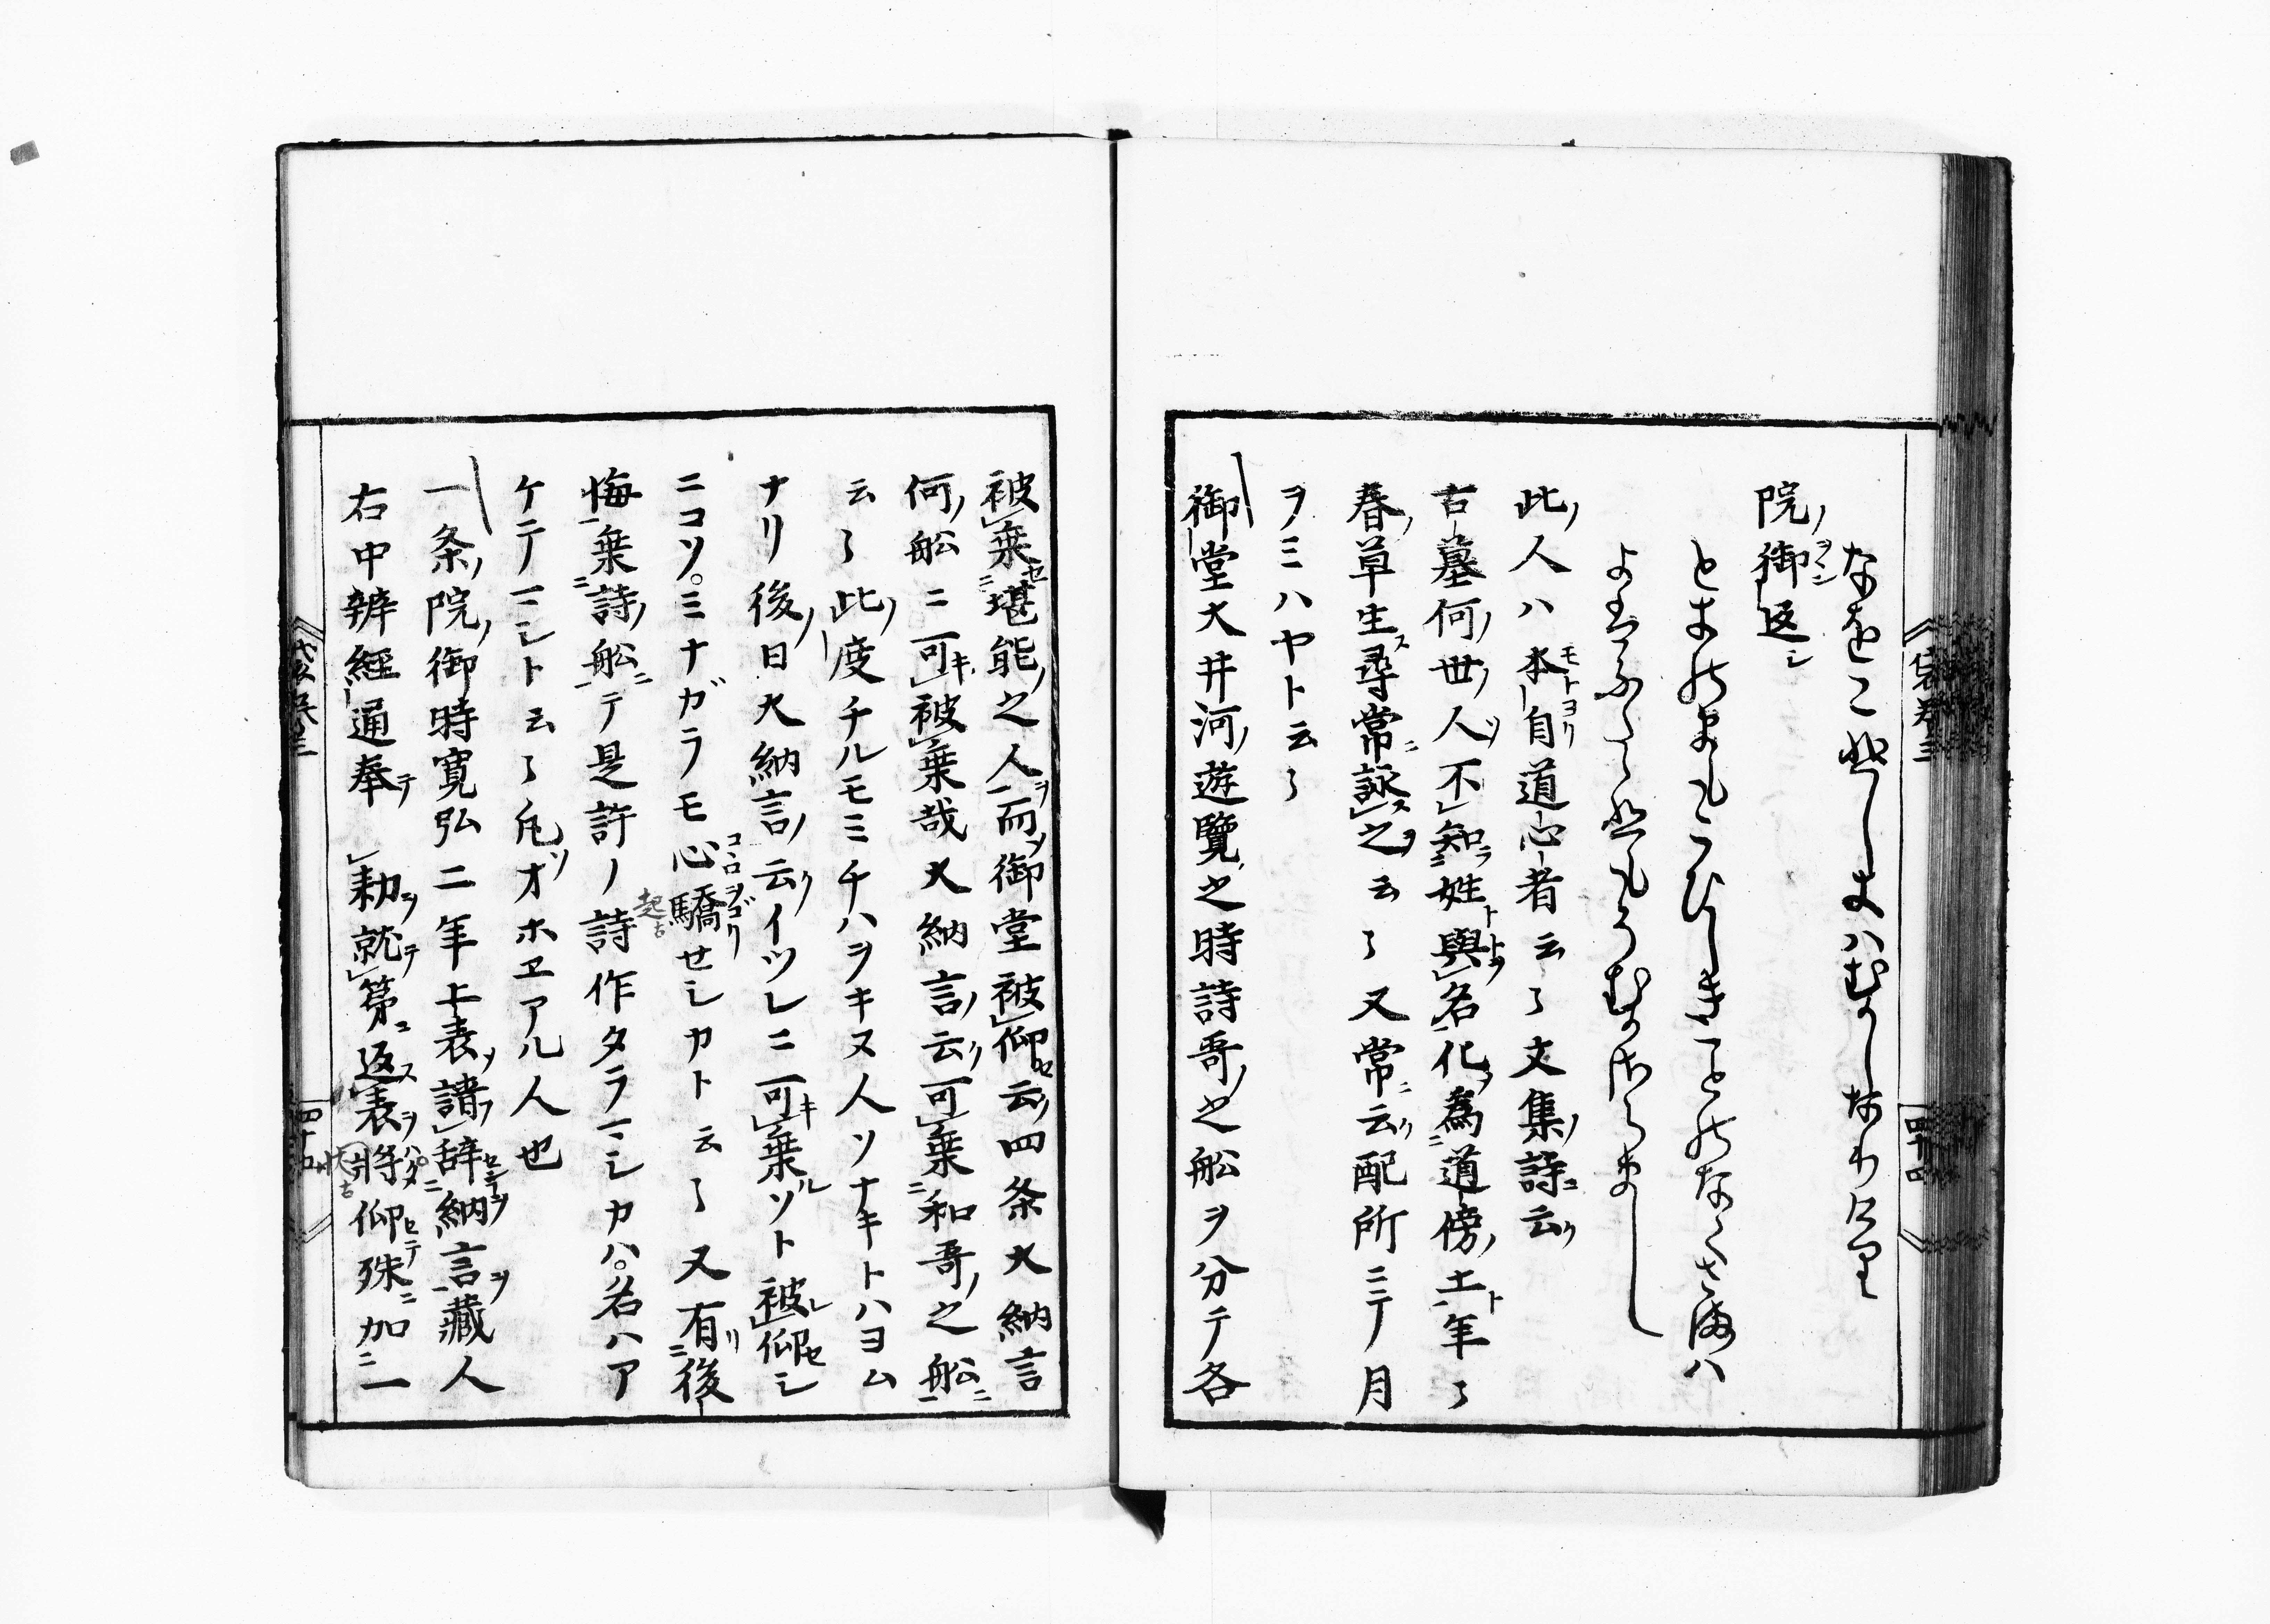 なをこひしきはむかしなりけり
院ノ御返シ
とき〳〵もこひしきことのなくさまは
此ノ人ハ本自道心者云々文集ノ詩ニ云ク
古墓何ノ世ノ人ソ不知姓與名化為道傍ノ土年々
春ノ草生ス尋常ニ詠ス之ヲ云々又常ニ云ク配所ニテ月
ヲミハヤト云々
御堂大井河ノ遊覽之時詩哥ノ之舩ヲ分テ各
被乗堪能ノ之人ヲ而ヲ御堂被仰セ云ク四条大納言
何ノ舩ニ可キ被乗哉大納言ノ云ク可乗和哥ノ之舩ニ
云々此ノ度チルモミチハヲキヌ人ソナキトハヨム
ナリ後ノ日大納言ノ云クイツレニ可キ乗ルソト被レ仰セシ
ニコソ。ミナガラモ心驕せシカト云々又有リ後
悔乗詩ノ舩ニテ是許ノ詩作タラマシカハ。名ハア
ケテマシト云々凡ソオホヱアル人也
一条ノ院ノ御時寛弘二年上表ノ請辞納言ヲ藏人
右中辨經通奉テ勅ヲ就テ第ニ返ス表ヲ將仰セテ殊ニ加一
袋巻三
四十四